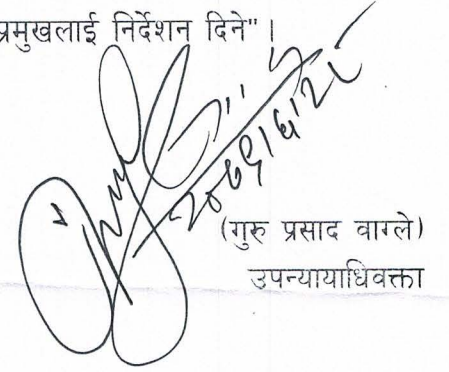 प्रमुखलाई निर्देशन दिने"।
(गुरु प्रसाद वाग्ले)
उपन्यायाधिवक्ता